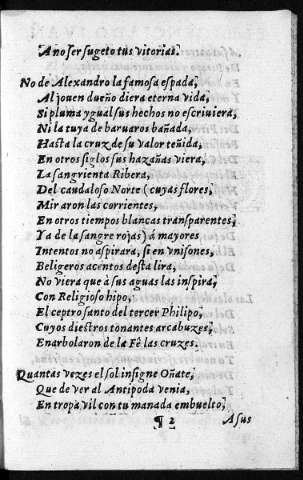 A no ser sugeto tus vitorias.
No de Alexandro la famosa espada,
Al jouen dueño diera eterna vida,
Si pluma ygual sus hechos no escriuiera,
Ni la tuya de baruaros bañada,
Hasta la cruz de su valor teñida,
En otros siglos sus hazañas viera,
La sangrienta Ribera,
Del caudaloso Norte (cuyas flores,
Miraron las corrientes,
En otros tiempos blancas transparentes,
Ya de la sangre rojas) á mayores
Intentos no aspirara, si en vnisones,
Beligeros acentos desta lira,
No viera que à sus aguas las inspira,
Con Religioso hipo,
El ceptro santo del tercer Philipo,
Cuyos diestros tonantes arcabuzes,
Enarbolaron de la Fê las cruzes.
Quantas vezes el sol insigne Oñate,
Que de ver al Antipoda venia,
En tropa vil con tu manada embuelto,
¶ 2
A sus